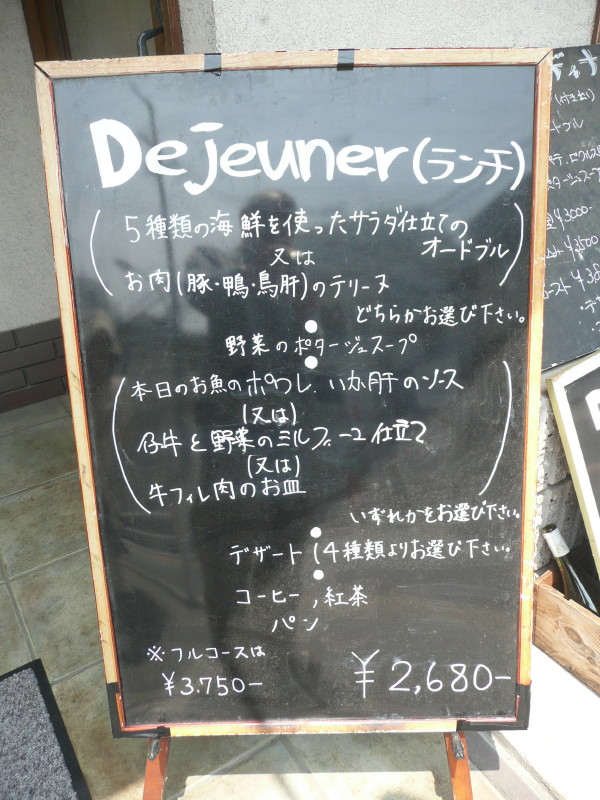 Dejeuner (ランチ)
5種類の海鮮を使ったサラダ仕立ての
オードブル
又は
お肉(豚・鴨・鳥肝)のテリーヌ
どちらかお選び下さい。
野菜のポタージュスープ
本日のお魚のポワレ、いか肝のソース
(又は)
仔牛と野菜のミルフィーユ仕立て
(又は)
牛フィレ肉のお皿
いずれかをお選び下さい。
デザート (4種類よりお選び下さい。
コーヒー, 紅茶
パン
※フルコースは
¥3.750-
¥2,680-
ディナ